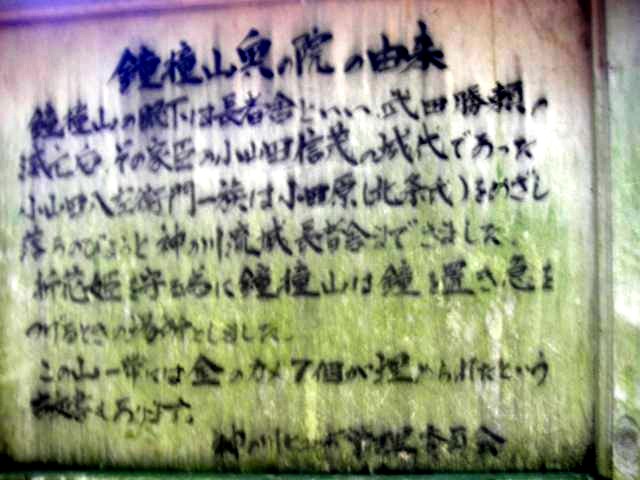 鐘撞山奥の院の由来
鐘撞山の眼下は長者舎といい、武田勝頼の
滅亡后、その家臣の小山田信茂の城代であった
小山田八左衛門一族は小田原(北条氏)をめざし
落ちのびようと神の川流域長者舎まできました。
折花姫を守る為に鐘撞山は鐘を置き急を
つげるときの場所としました。
この山一帯には金のカメ7個が埋められたという
もあります。
神の川 委員会